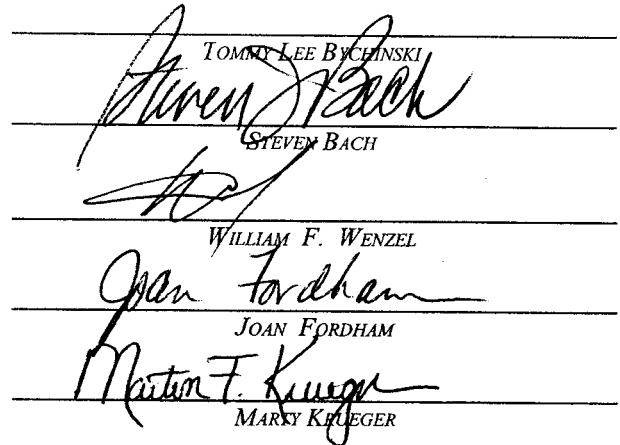 TOMMY LEE BYCHINSKI
Steven J Bach
STEVEN BACH
WILLIAM F. WENZEL
Joan Fordham
JOAN FORDHAM
Martin F. Krueger
MARTY KRUEGER